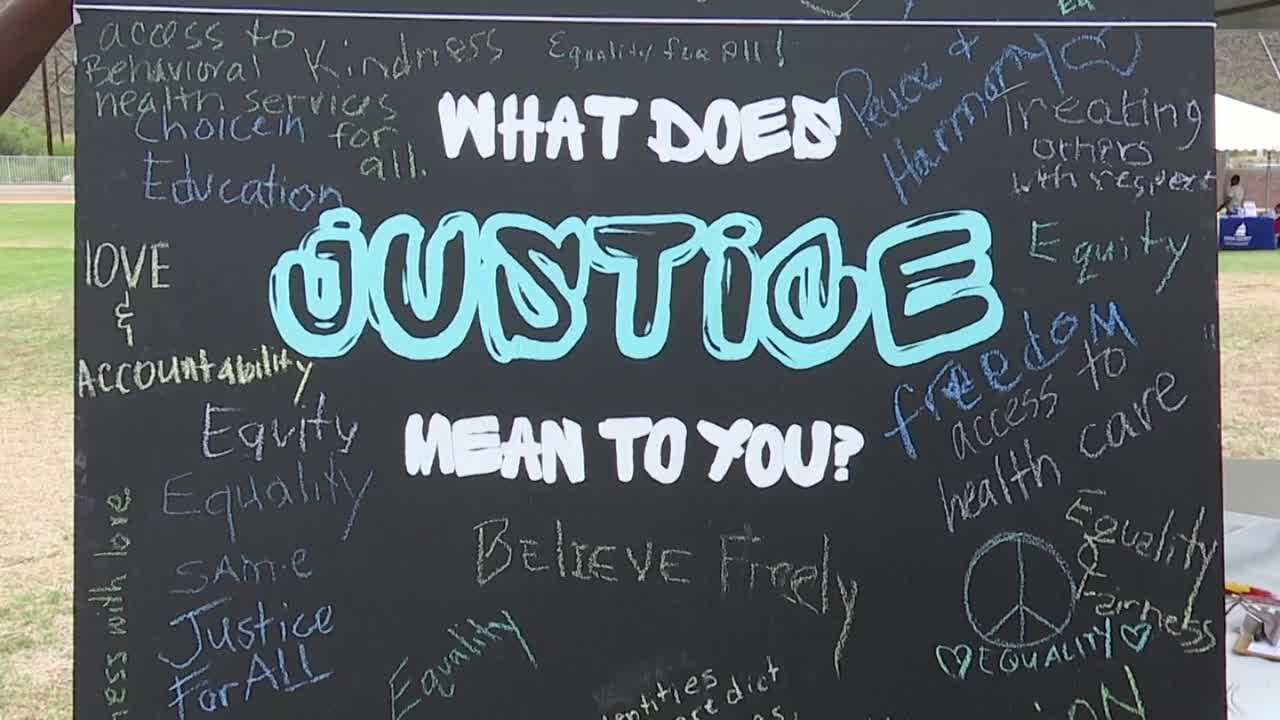 access to
Behavioral
health services
for
all.
Kindness
Equality for All!
Peace &
Harmony
Treating
others
with respect
Choice in
Education
WHAT DOES
JUSTICE
MEAN TO YOU?
love
&
Accountability
Equity
Equality
Equity
freedom
access to
health care
SAme
Justice
For ALL
Believe Freely
Equality
Equality
&
Fairness
EQUALITY